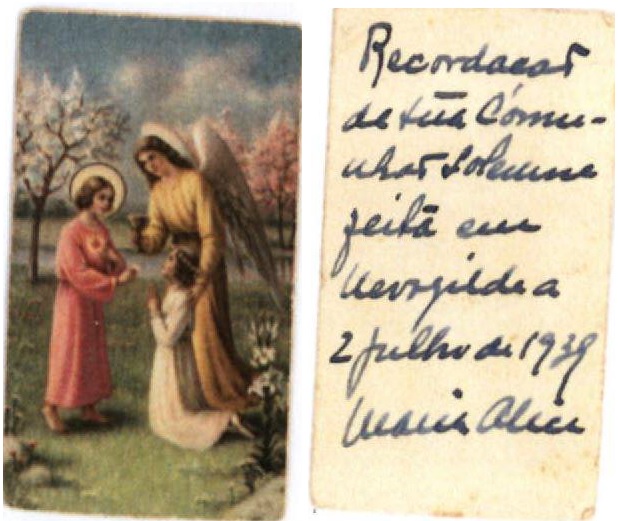 Recordacaõ
de tua Comu-
nhaõ Solemne
feita em
Nevogilde a
2 Julho de 1939
Maria Alice